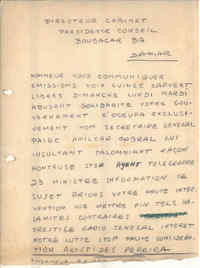 DIRECTEUR CABINET
PRESIDENCE CONSEIL
BOUBACAR BA
DAKAR
HONNEUR VOUS COMMUNIQUER
EMISSIONS VOIX GUINEE
LIBRES DIMANCHE LUNDI MARDI
ABUSANT SOLIDARITE VOTRE GOU-
VERNEMENT S'OCCUPA EXCLUSI-
VEMENT NOM SECRETAIRE GENERAL
PAIGC AMILCAR CABRAL LUI
INSULTANT CALOMNIANT FAÇON
HONTEUSE STOP AYANT TELEGRAPHE
MINISTRE INFORMATION CE
SUJET PRIONS VOTRE HAUTE INTER-
VENTION METTRE FIN TELS
CONTRAIRES
PRESTIGE RADIO SENEGAL INTERET
NOTRE LUTTE STOP HAUTE CONSIDERA-
TION ARISTIDES PEREIRA